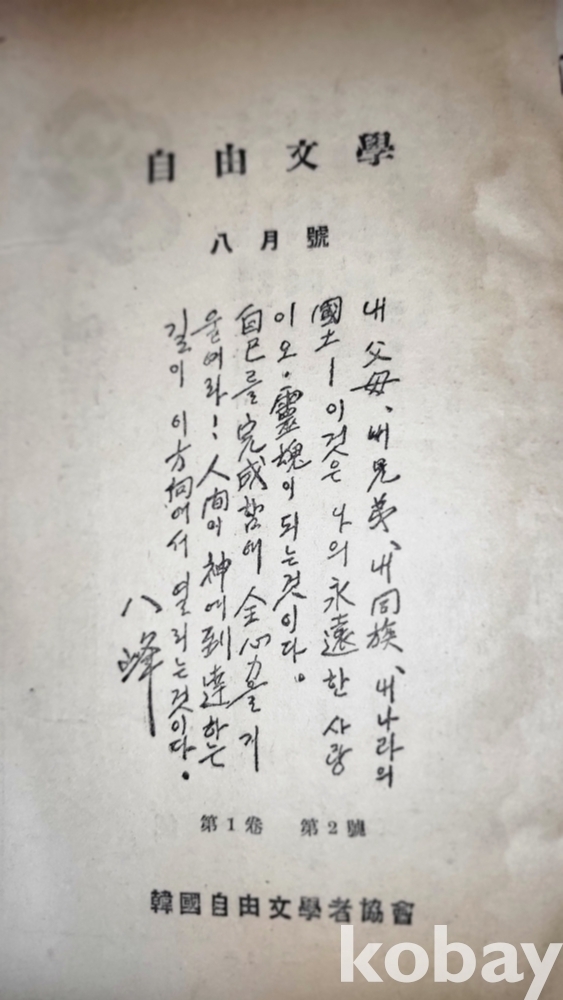 自由文學
八月號
내 父母、내 兄弟、내 同族、내 나라의
國土ㅣ이것은 나의 永遠한 사랑
이오. 靈魂이 되는 것이다.
自己를 完成함에 全心力을 기
울여라! 人間이 神에 到達하는
길이 이 方向에서 열리는 것이다.
八峰
第1卷 第2號
韓國自由文學者協會
kobay